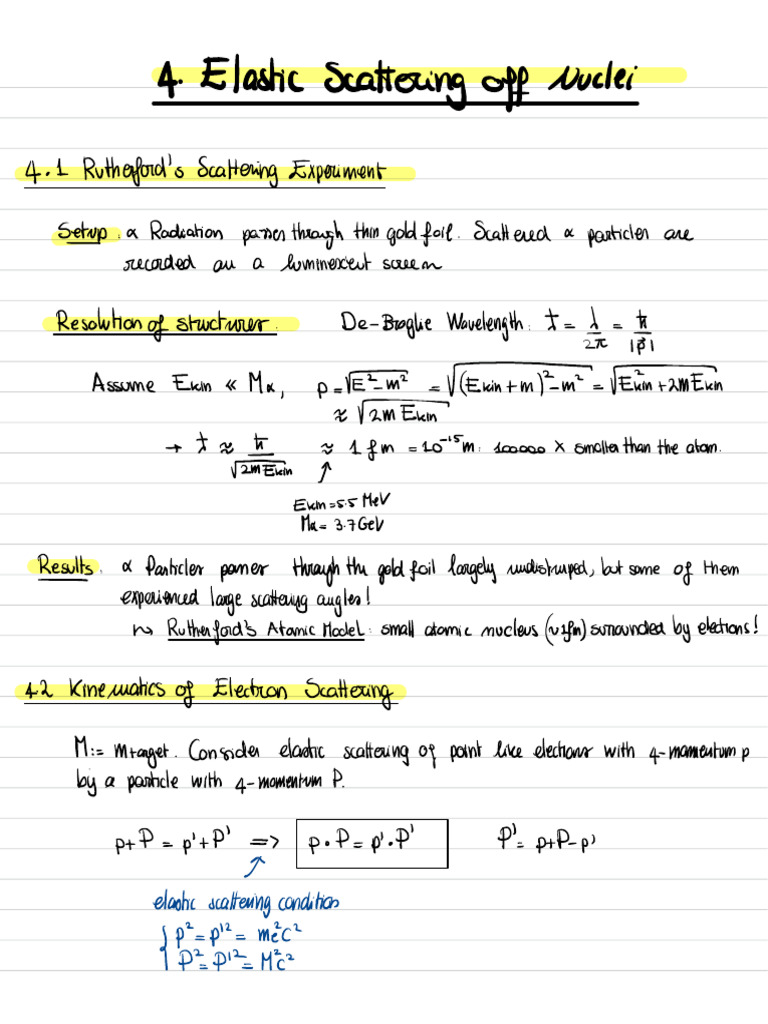 4. Elastic Scattering off Nuclei
4.1 Rutherford's Scattering Experiment
Setup: α Radiation passes through thin gold foil. Scattered α particles are
recorded on a luminexent screen
Resolution of structures: De-Broglie Wavelength: ƛ = λ/2π = ħ/|p⃗|
Assume Ekin << Mα, p = √(E² - m²) = √((Ekin + m)² - m²) = √(E²kin + 2mEkin)
≈ √(2mEkin)
→ ƛ ≈ ħ/√(2mEkin) ≈ 1 fm = 10⁻¹⁵ m: 100000 x smaller than the atom.
Ekin = 5.5 MeV
Mα = 3.7 GeV
Results: α Particles passes through the gold foil largely undistruped, but some of them
experienced large scattering angles!
↝ Rutherford's Atomic Model: small atomic nucleus (~1fm) surrounded by electrons!
4.2 Kinematics of Electron Scattering
M := mtarget. Consider elastic scattering of point like electrons with 4-momentum p
by a particle with 4-momentum P.
p + P = p' + P' => p · P = p' · P' P' = p + P - p'
elastic scattering condition
{ p² = p'² = me²c²
P² = P'² = M²c²